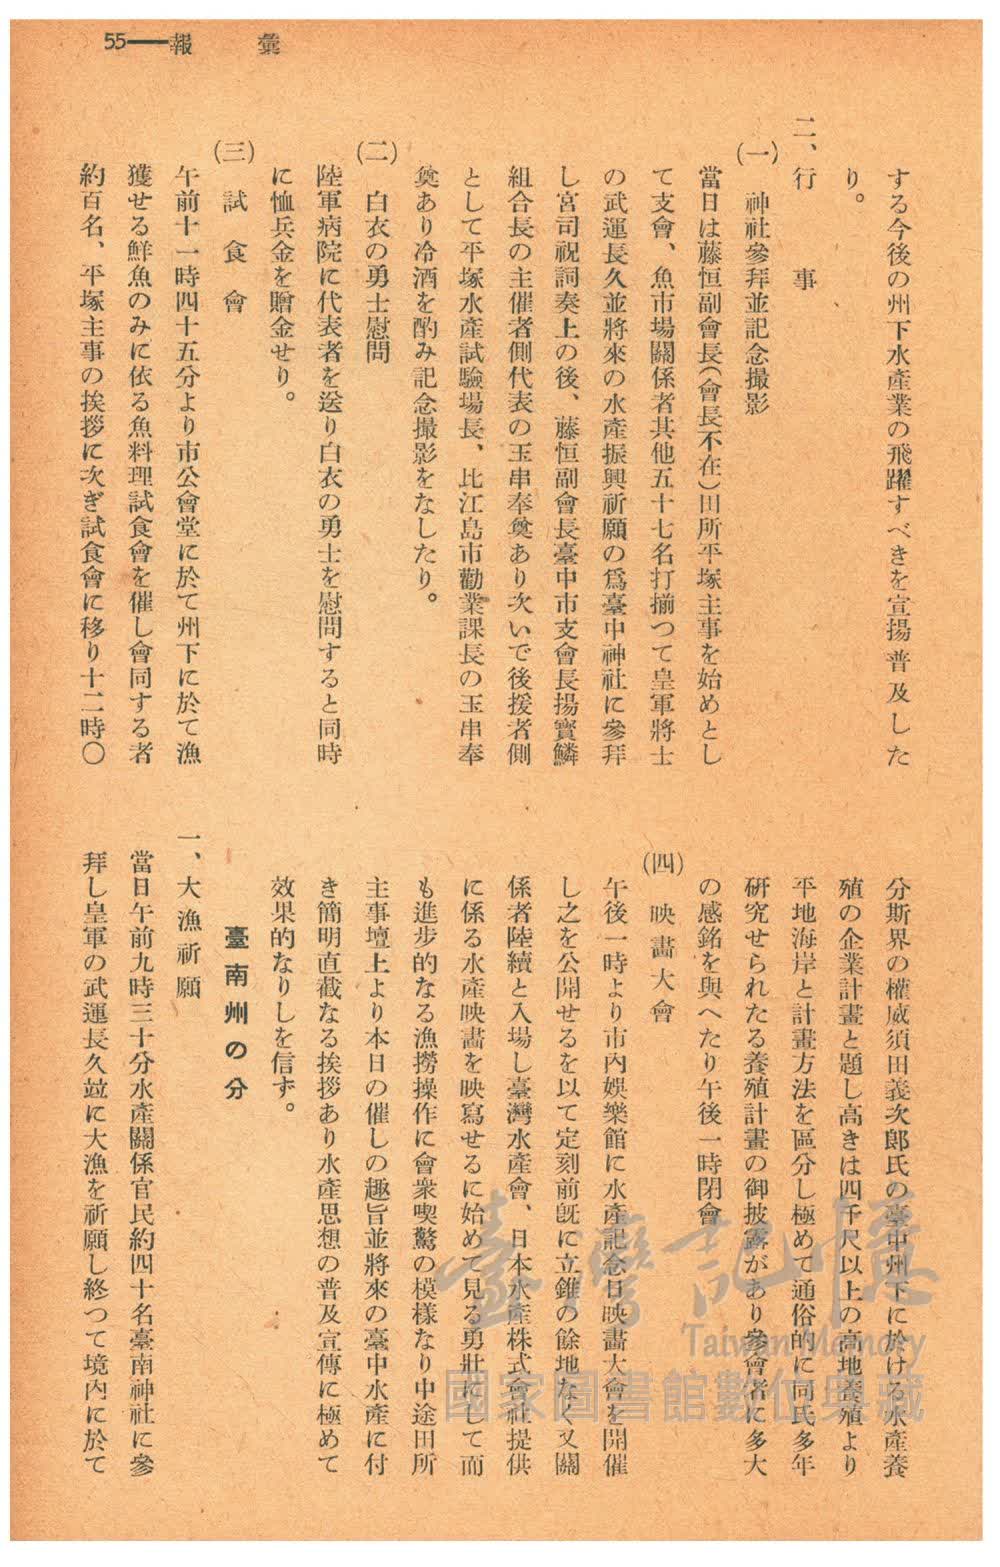 彙報——55
する今後の州下水產業の飛躍すべきを宣揚普及した
り。
二、行事
(一) 神社參拜並記念撮影
當日は藤恒副會長(會長不在)田所平塚主事を始めとし
て支會、魚市場關係者其他五十七名打揃つて皇軍將士
の武運長久並將來の水產振興祈願の爲臺中神社に參拜
し宮司祝詞奏上の後、藤恒副會長臺中市支會長揚寶鱗
組合長の主催者側代表の玉串奉奠あり次いで後援者側
として平塚水產試驗場長、比江島市勸業課長の玉串奉
奠あり冷酒を酌み記念撮影をなしたり。
(二) 白衣の勇士慰問
陸軍病院に代表者を送り白衣の勇士を慰問すると同時
に恤兵金を贈金せり。
(三) 試食會
午前十一時四十五分より市公會堂に於て州下に於て漁
獲せる鮮魚のみに依る魚料理試食會を催し會同する者
約百名、平塚主事の挨拶に次ぎ試食會に移り十二時〇
分斯界の權威須田義次郎氏の臺中州下に於ける水產養
殖の企業計畫と題し高きは四千尺以上の高地養殖より
平地海岸と計畫方法を區分し極めて通俗的に同氏多年
硏究せられたる養殖計畫の御披露があり參會者に多大
の感銘を與へたり午後一時閉會
(四) 映畫大會
午後一時より市內娛樂館に水產記念日映畫大會を開催
し之を公開せるを以て定刻前旣に立錐の餘地なく又關
係者陸續と入場し臺灣水產會、日本水產株式會社提供
に係る水產映畵を映寫せるに始めて見る勇壯にして而
も進步的なる漁撈操作に會衆喫驚の模樣なり中途田所
主事壇上より本日の催しの趣旨並將來の臺中水產に付
き簡明直截なる挨拶あり水產思想の普及宣傳に極めて
效果的なりしを信ず。
臺南州の分
一、大漁祈願
當日午前九時三十分水產關係官民約四十名臺南神社に參
拜し皇軍の武運長久竝に大漁を祈願し終つて境內に於て
臺灣記憶
Taiwan Memory
國家圖書館數位典藏